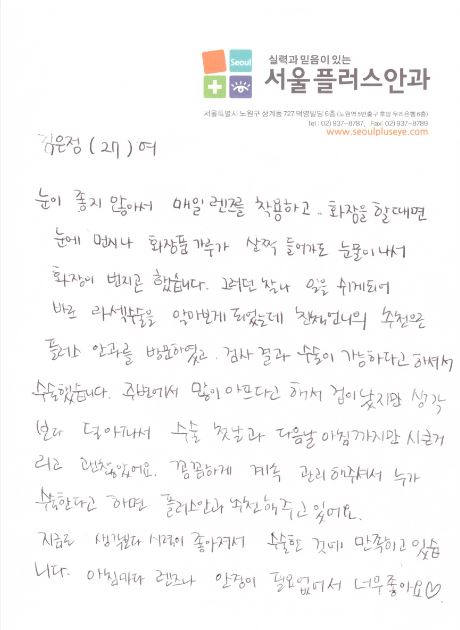 Seoul
실력과 믿음이 있는
서울플러스안과
서울특별시 노원구 상계동 727 덕영빌딩 6층 (노원역 5번출구 후방 우리은행 6층)
Tel : 02) 937-8787, Fax : 02) 937-8789
www.seoulpluseye.com
김은정 (27) 여
눈이 좋지 않아서 매일 렌즈를 착용하고.. 화장을 할때면
눈에 먼지나 화장품 가루가 살짝 들어가도 눈물이 나서
화장이 번지곤 했습니다. 그러던 찰나 일을 쉬게되어
바로 라섹수술을 알아보게 되었는데 친척언니의 추천으로
플러스 안과를 방문하였고. 검사 결과 수술이 가능하다고 하셔서
수술했습니다. 주변에서 많이 아프다고 해서 겁이 났지만 생각
보다 덜 아파서 수술 첫날과 다음날 아침까지만 시큰거
리고 괜찮았어요. 꼼꼼하게 계속 관리해주셔서 누가
수술한다고 하면 플러스안과 추천해주고 있어요.
지금도 생각보다 시력이 좋아져서 수술한 것에 만족하고 있습
니다. 아침마다 렌즈나 안경이 필요없어서 너무 좋아요♡